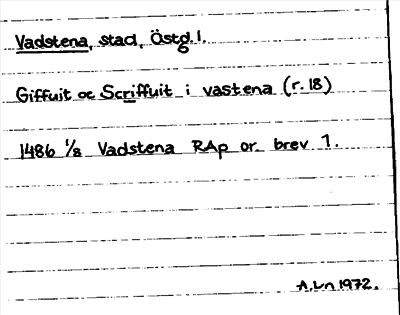 Vadstena, stad, Östg. l.
Giffuit oc Scriffuit i vastena (r. 18)
1486 1/8 Vadstena RAp or. brev 1.
A.Ln 1972.